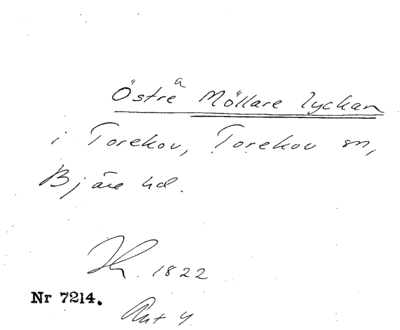 Östre a Möllare lyckan
i Torekov, Torekov sn,
Bjäre hd.
1822
Nr 7214.